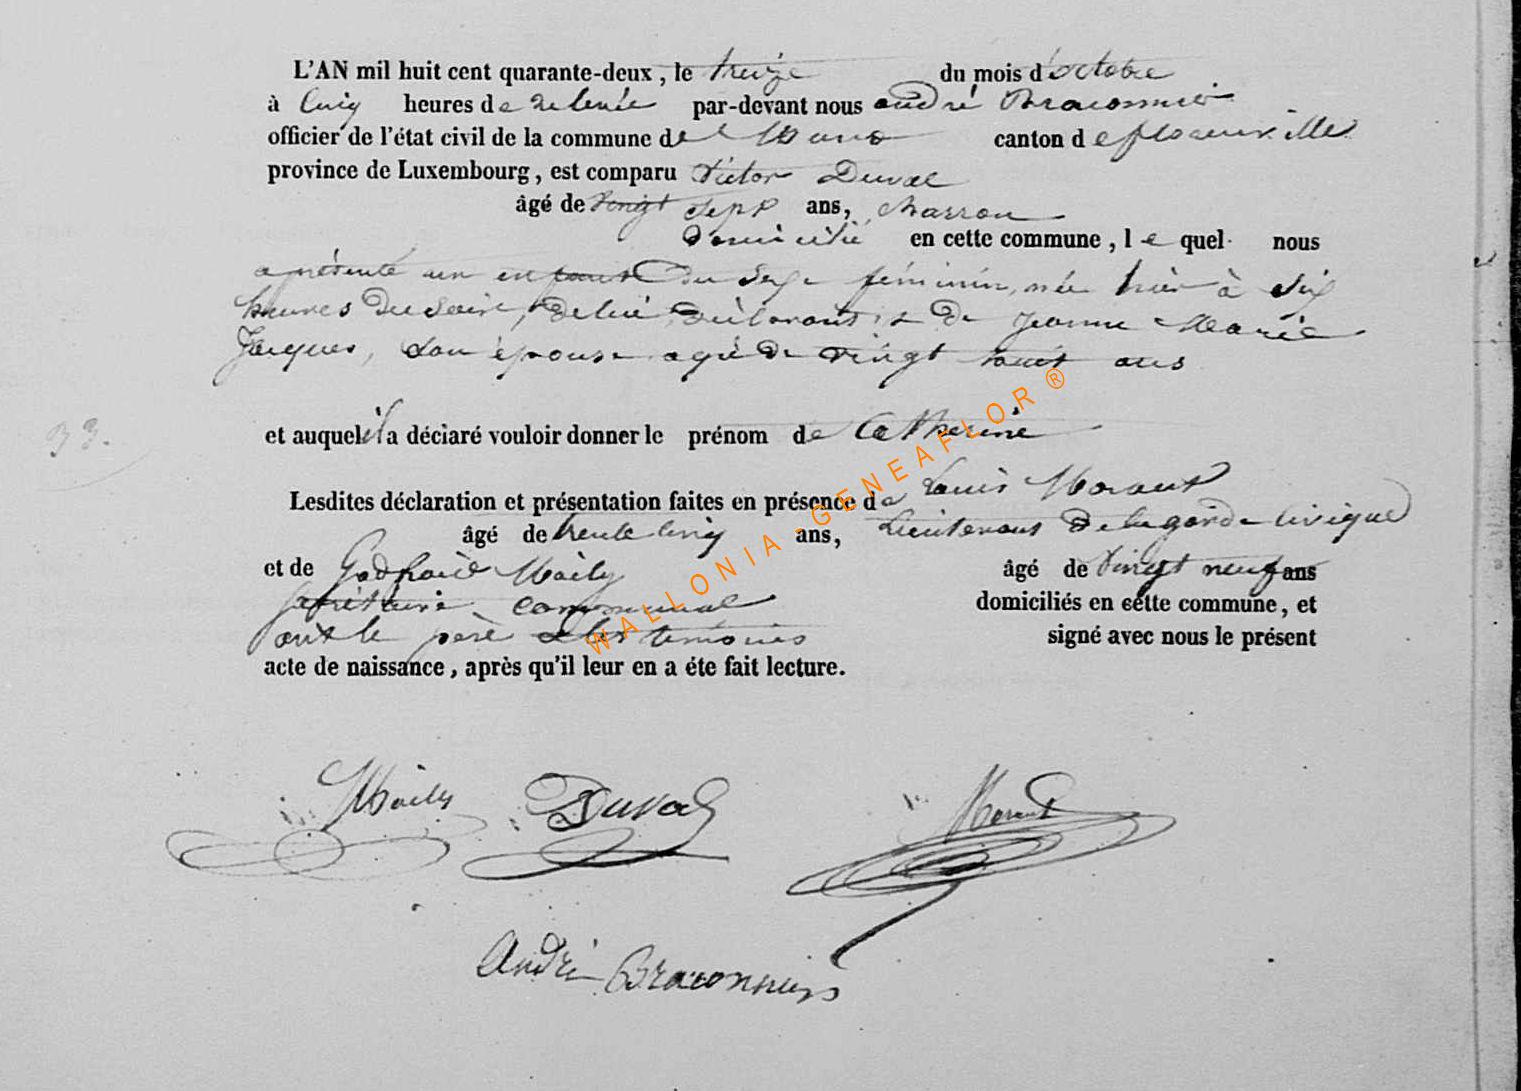 L'AN mil huit cent quarante-deux, le treize du mois d'octobre
à cinq heures de relevée par-devant nous andré Braconnier
officier de l'état civil de la commune de Muno canton de florenville
province de Luxembourg, est comparu Victor Duval
âgé de vingt sept ans,
domicilié en cette commune, lequel nous
a présenté un enfant du sexe féminin, née hier à six
heures du soir, de lui déclarant et de Jeanne Marie
Jacques, son épouse agée de vingt ans
33.
et auquel il a déclaré vouloir donner le prénom de Catherine
Lesdites déclaration et présentation faites en présence de Louis Moraux
âgé de trente cinq ans, Lieutenant de la garde civique
et de Godfroid Maily âgé de vingt neuf ans
secrétaire communal domiciliés en cette commune, et
ont le père & les témoins signé avec nous le présent
acte de naissance, après qu'il leur en a éte fait lecture.
WALLONIA - GENEAFLOR ®
Mailly Duval
André Braconnier